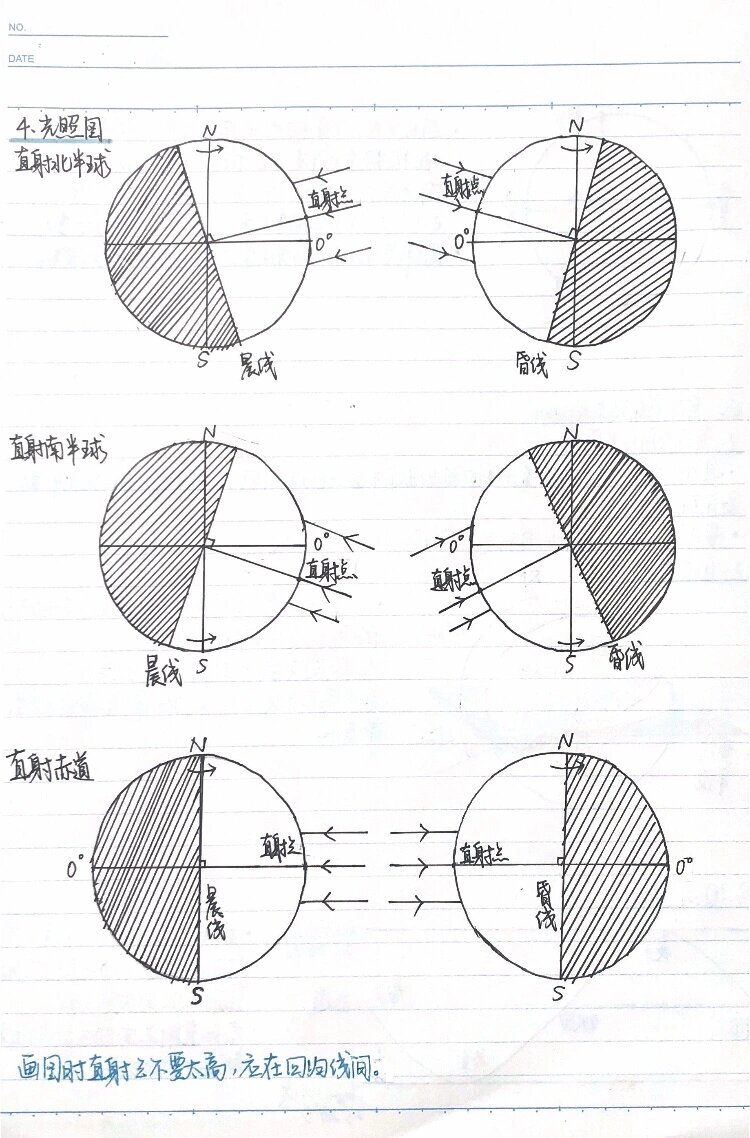 NO.
DATE
4、光照图
直射北半球
N
直射点
0°
S
晨线
N
直射点
0°
S
昏线
直射南半球
N
0°
直射点
S
晨线
N
0°
直射点
S
昏线
直射赤道
N
0°
直射点
晨线
S
N
直射点
0°
昏线
S
画图时直射点不要太高，应在回归线间。